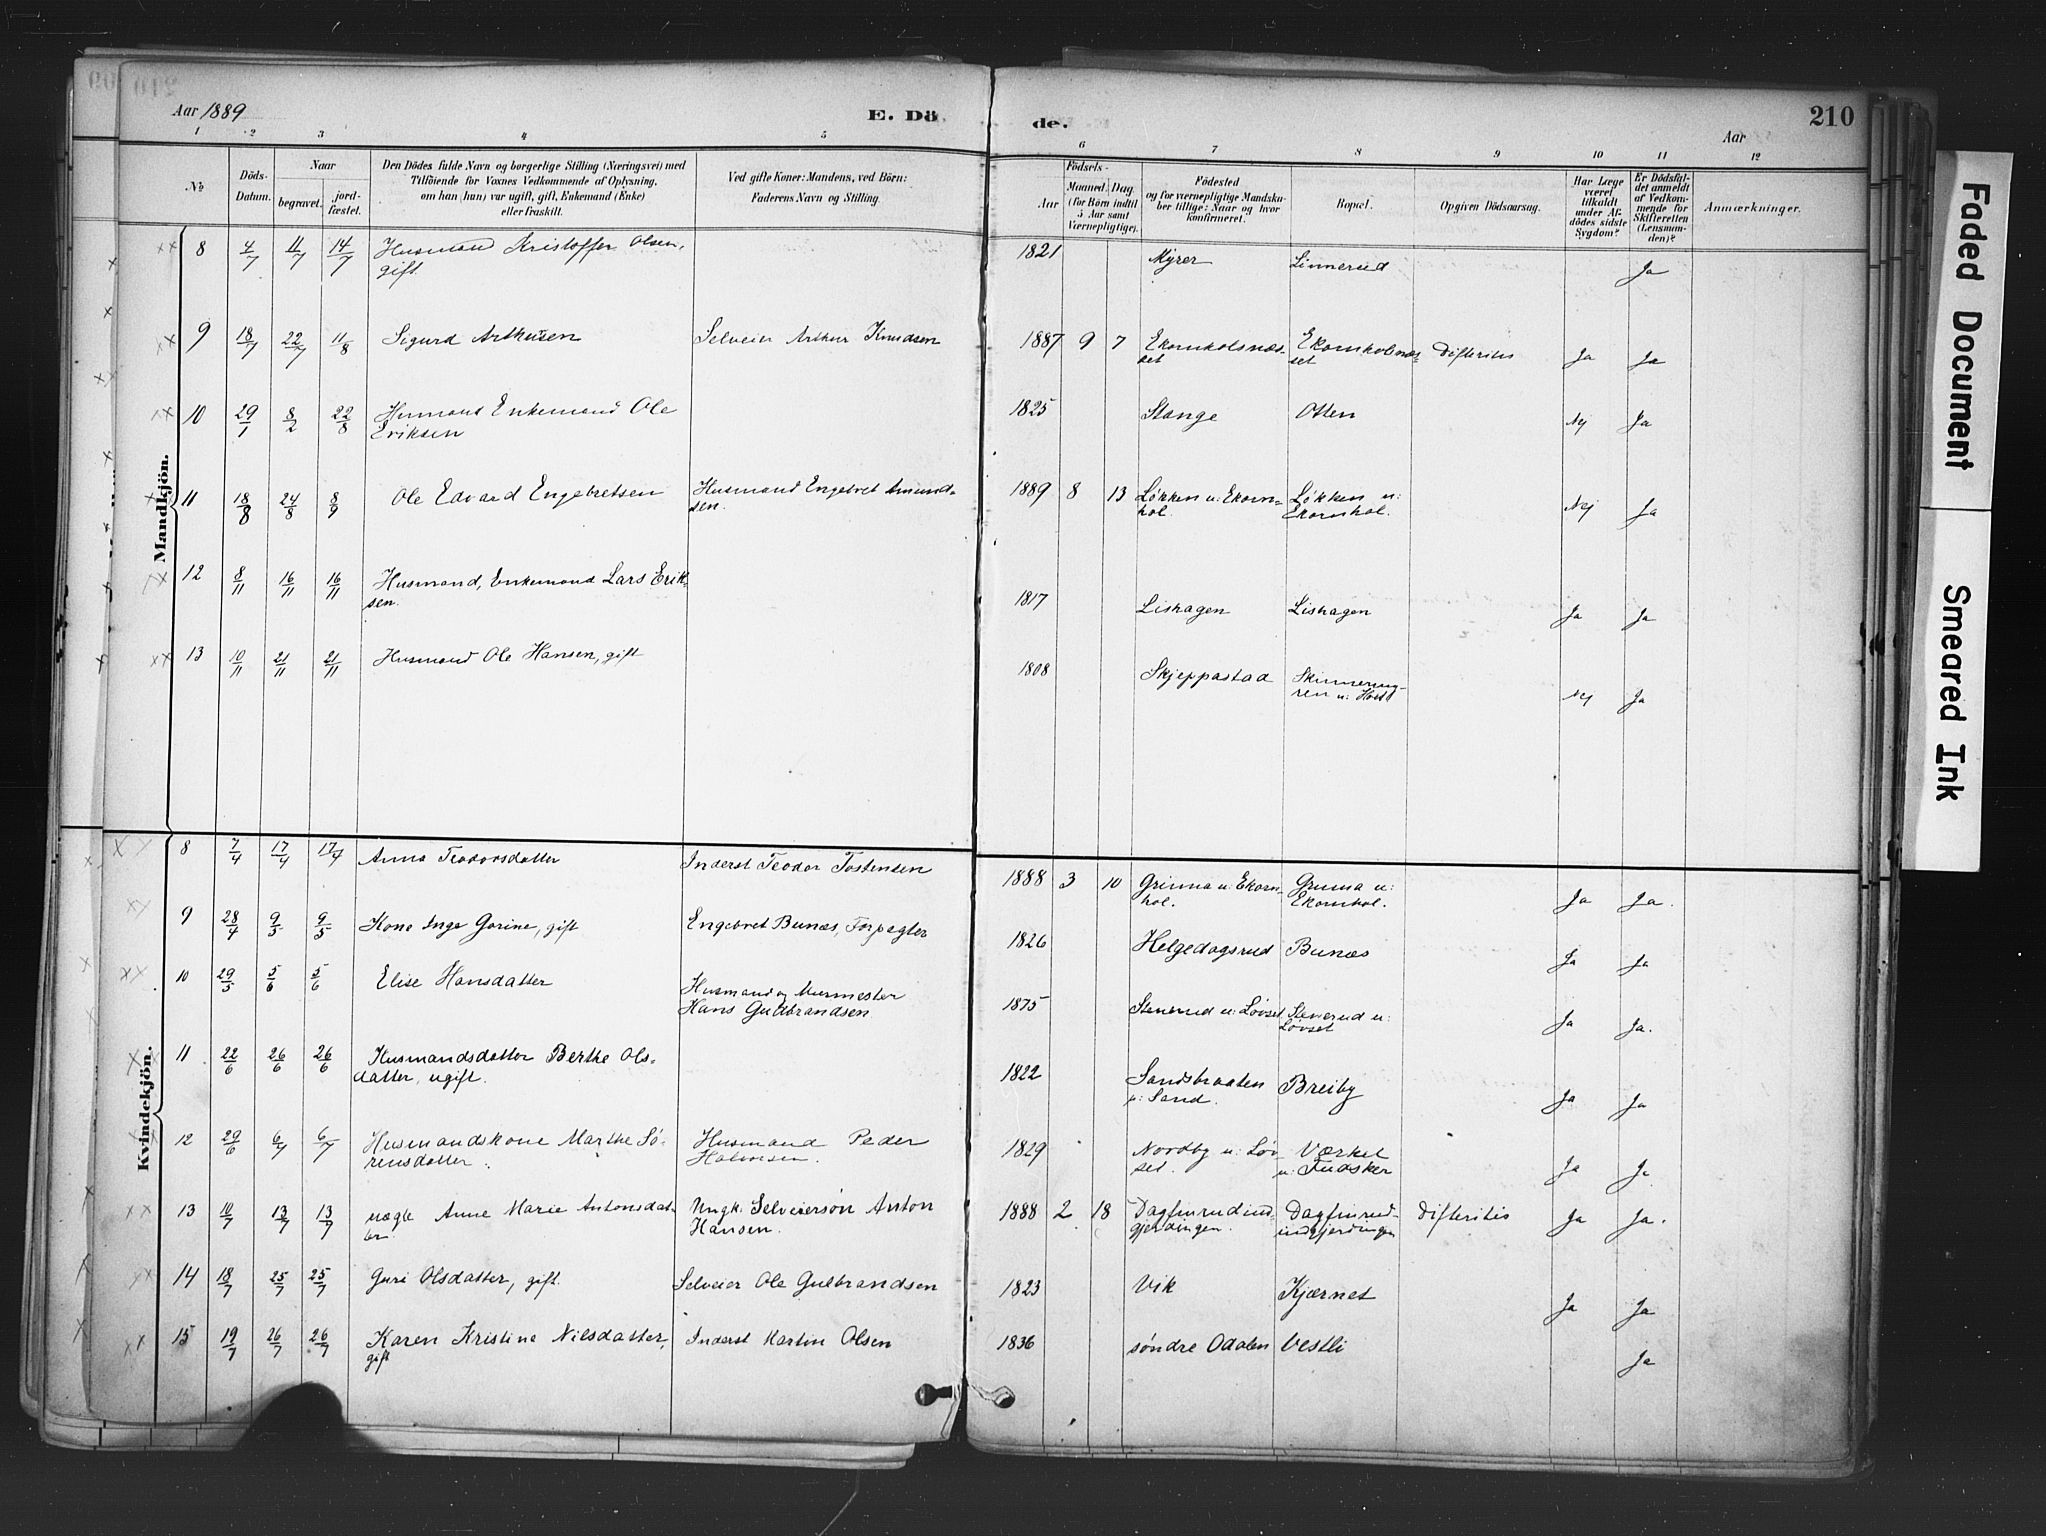 Aar 1889
E. Dö
de.
Aar
210
1 2 3 4 5 6 7 8 9 10 11 12
No
Döds-Datum.
Naar
begravet.
jord-fæstet.
Den Dödes fulde Navn og borgerlige Stilling (Næringsvei) med
Tilföiende for Voxnes Vedkommende af Oplysning,
om han (hun) var ugift, gift, Enkemand (Enke)
eller fraskilt.
Ved gifte Koner: Mandens, ved Börn:
Faderens Navn og Stilling.
Födsels-
Aar
Maaned. Dag
(for Börn indtil
5 Aar samt
Værnepligtige).
Födested
og for værnepligtige Mandsku-
ber tillige: Naar og hvor
konfirmeret.
Bopæl.
Opgiven Dödsaarsag.
Har Læge
været
tilkaldt
under Af-
dödes sidste
Sygdom?
Er Dödsfal-
det anmeldt
af Vedkom-
mende for
Skifteretten
(Lensman-
den)?
Anmærkninger.
Mandkjön.
8 4/7 11/7 14/7 Husmand Kristoffer Olsen, 1821 Myrer Linnerud Ja
gift
9 18/7 22/7 11/8 Sigurd Arthursen Selveier Arthur Knudsen 1887 9 7 Ekornholsnæs- Ekornholnæs- Difteritis Ja Ja
set set
10 29/1 8/2 22/8 Husmand Enkemand Ole 1825 Stange Otten Nej Ja
Eriksen
11 18/8 24/8 8/9 Ole Edvard Engebretsen Husmand Engebret Amund- 1889 8 13 Løkken u: Ekorn- Løkken u: Nej Ja
sen. hol. Ekornhol.
12 8/11 16/11 16/11 Husmand, Enkemand Lars Erik- 1817 Lishagen Lishagen Ja Ja
sen.
13 10/11 21/11 21/11 Husmand Ole Hansen, gift 1808 Skjeppastad Nej Ja
Kvindekjön.
8 7/4 17/4 17/4 Anna Teodorsdatter Inderst Teodor Tostensen 1888 3 10 Grinna u: Ekorn- Grinna u: Ja Ja.
hol. Ekornhol.
9 28/4 9/5 9/5 Kone Inge Gorine, gift Engebret Bunæs, Forpagter 1826 Helgedagsrud Bunæs Ja Ja
10 29/5 5/6 5/6 Elise Hansdatter Husmand og Murmester 1875 Stenerud u: Løvset Stenerud u: Ja Ja.
Hans Gulbrandsen Løvset
11 22/6 26/6 26/6 Husmandsdatter Berthe Ols- 1822 Sandsbraaten Breiby Ja Ja
datter, ugift. u: Sand.
12 29/6 6/7 6/7 Husmandskone Marthe Sö- Husmand Peder 1829 Nordby u: Løv- Værket Ja Ja
rensdatter. Halvorsen. set. u: Fudsker
13 10/7 13/7 13/7 uægte Anne Marie Antonsdat- Ungk. Selveiersøn Anton 1888 2 18 Dagfinrud ind- Dagfinrud- Difteritis Ja Ja.
ter. Hansen. gjerdingen. indgjerdingen
14 18/7 25/7 25/7 Guri Olsdatter, gift. Selveier Ole Gulbrandsen 1823 Vik Kjærnet Ja Ja
15 19/7 26/7 26/7 Karen Kristine Nilsdatter, Inderst Martin Olsen 1836 søndre Odalen Vestli Ja
gift
Faded Document
Smeared Ink